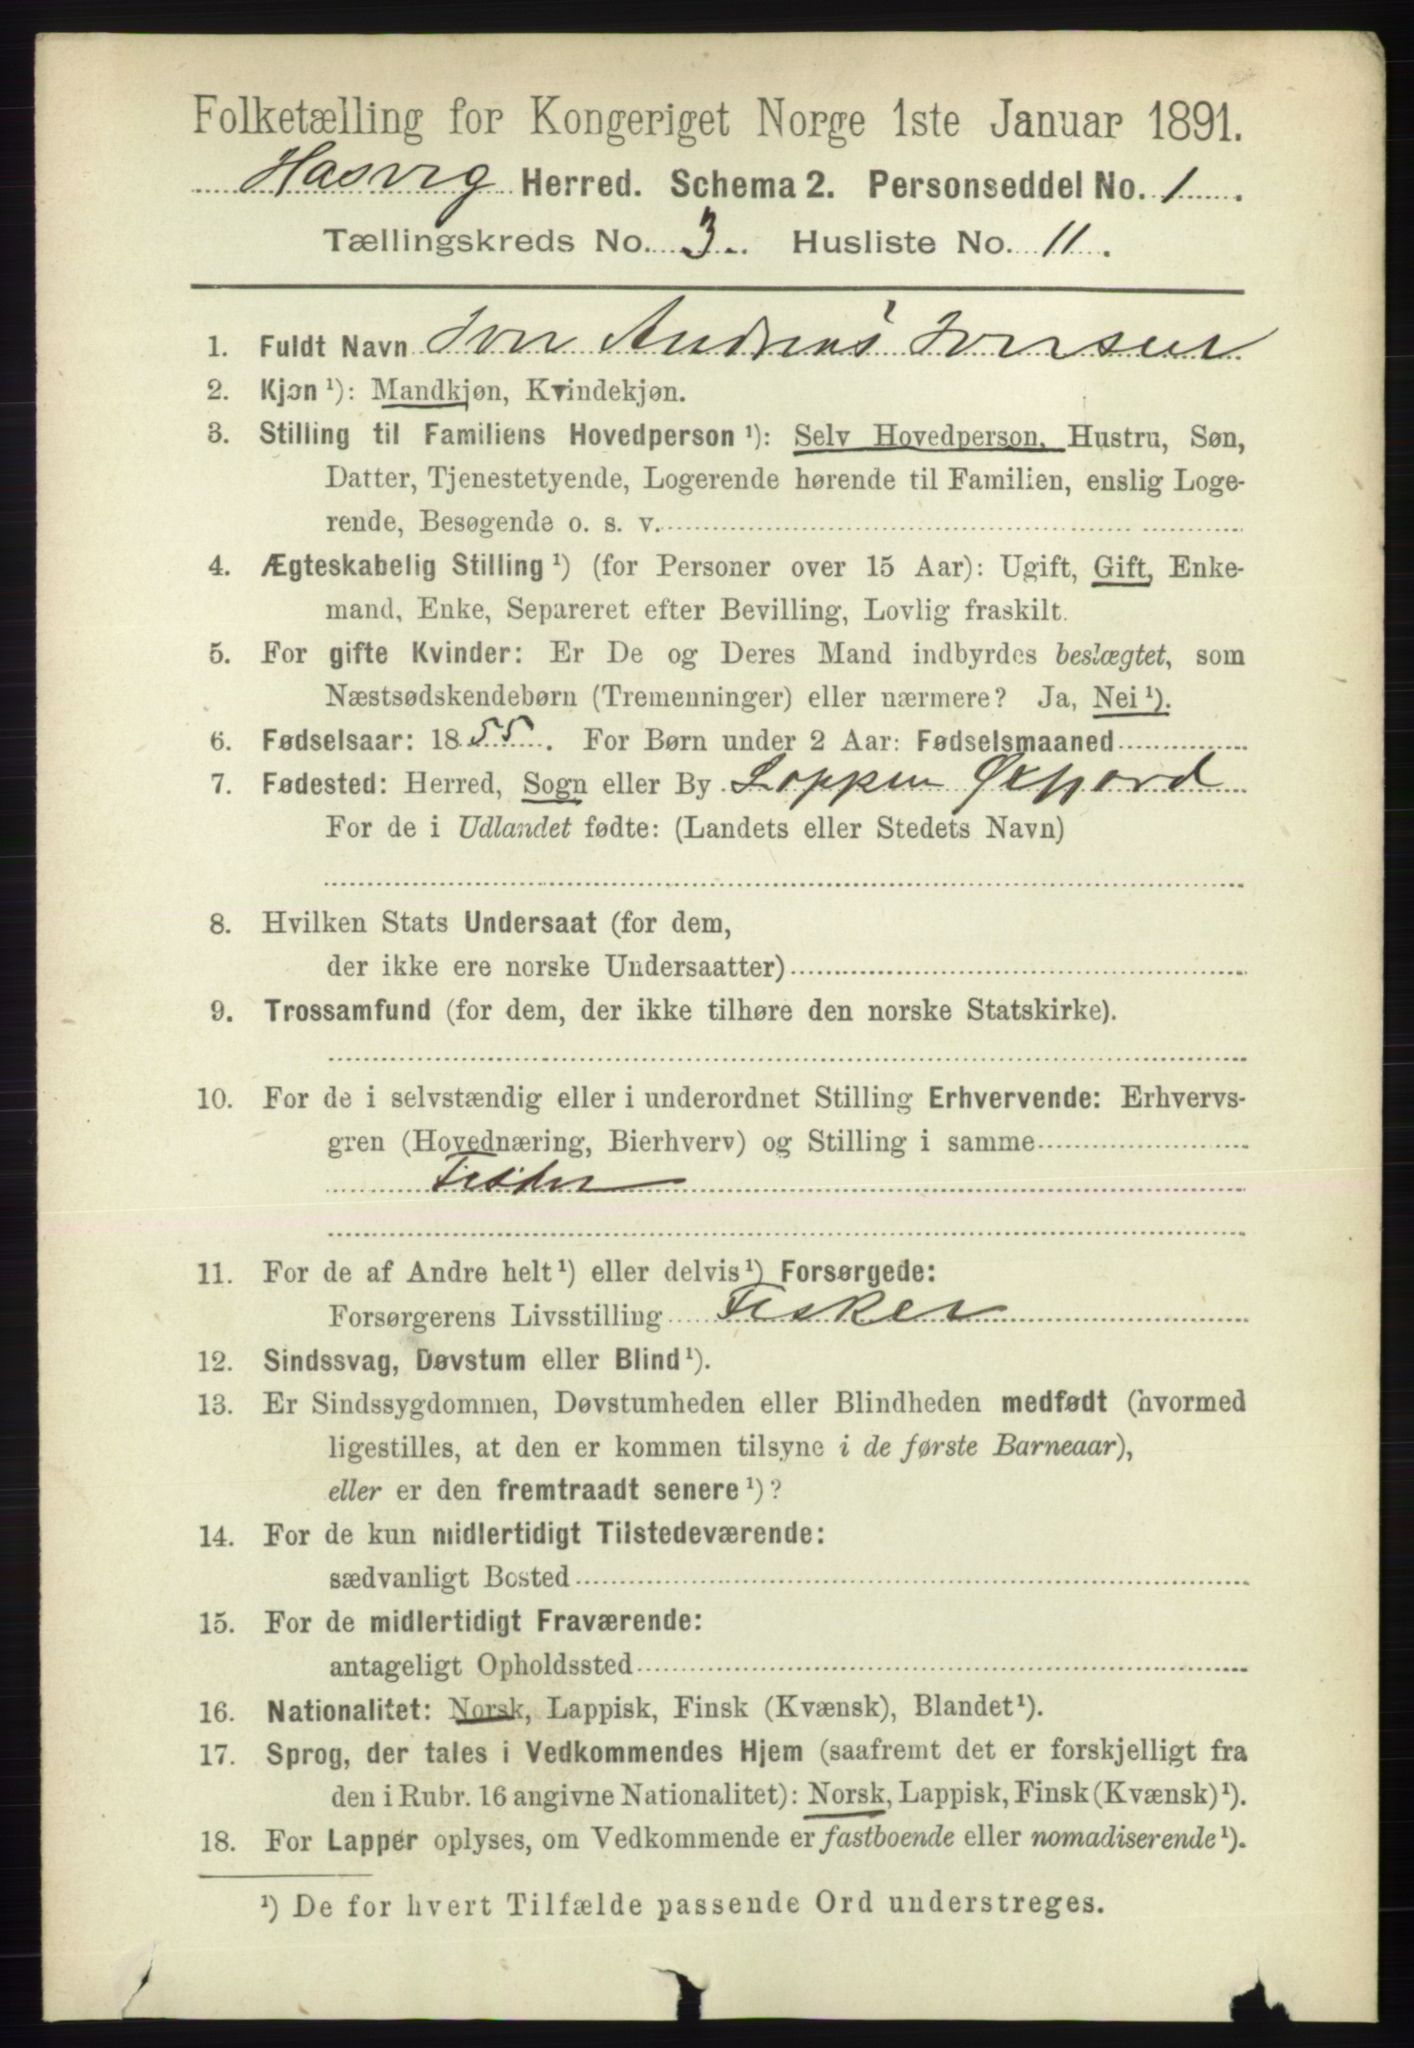 Folketælling for Kongeriget Norge 1ste Januar 1891.
Hasvig Herred. Schema 2. Personseddel No. 1.
Tællingskreds No. 3. Husliste No. 11.
1. Fuldt Navn Andreas
2. Kjøn ¹): Mandkjøn, Kvindekjøn.
3. Stilling til Familiens Hovedperson ¹): Selv Hovedperson, Hustru, Søn,
Datter, Tjenestetyende, Logerende hørende til Familien, enslig Loge-
rende, Besøgende o. s. v.
4. Ægteskabelig Stilling ¹) (for Personer over 15 Aar): Ugift, Gift, Enke-
mand, Enke, Separeret efter Bevilling, Lovlig fraskilt.
5. For gifte Kvinder: Er De og Deres Mand indbyrdes beslægtet, som
Næstsødskendebørn (Tremenninger) eller nærmere? Ja, Nei ¹).
6. Fødselsaar: 1855. For Børn under 2 Aar: Fødselsmaaned
7. Fødested: Herred, Sogn eller By Loppen Øxfjord
For de i Udlandet fødte: (Landets eller Stedets Navn)
8. Hvilken Stats Undersaat (for dem,
der ikke ere norske Undersaatter)
9. Trossamfund (for dem, der ikke tilhøre den norske Statskirke).
10. For de i selvstændig eller i underordnet Stilling Erhvervende: Erhvervs-
gren (Hovednæring, Bierhverv) og Stilling i samme
Fisker
11. For de af Andre helt ¹) eller delvis ¹) Forsørgede:
Forsørgerens Livsstilling Fisker
12. Sindssvag, Døvstum eller Blind ¹).
13. Er Sindssygdommen, Døvstumheden eller Blindheden medfødt (hvormed
ligestilles, at den er kommen tilsyne i de første Barneaar),
eller er den fremtraadt senere ¹)?
14. For de kun midlertidigt Tilstedeværende:
sædvanligt Bosted
15. For de midlertidigt Fraværende:
antageligt Opholdssted
16. Nationalitet: Norsk, Lappisk, Finsk (Kvænsk), Blandet ¹).
17. Sprog, der tales i Vedkommendes Hjem (saafremt det er forskjelligt fra
den i Rubr. 16 angivne Nationalitet): Norsk, Lappisk, Finsk (Kvænsk) ¹).
18. For Lapper oplyses, om Vedkommende er fastboende eller nomadiserende ¹).
¹) De for hvert Tilfælde passende Ord understreges.